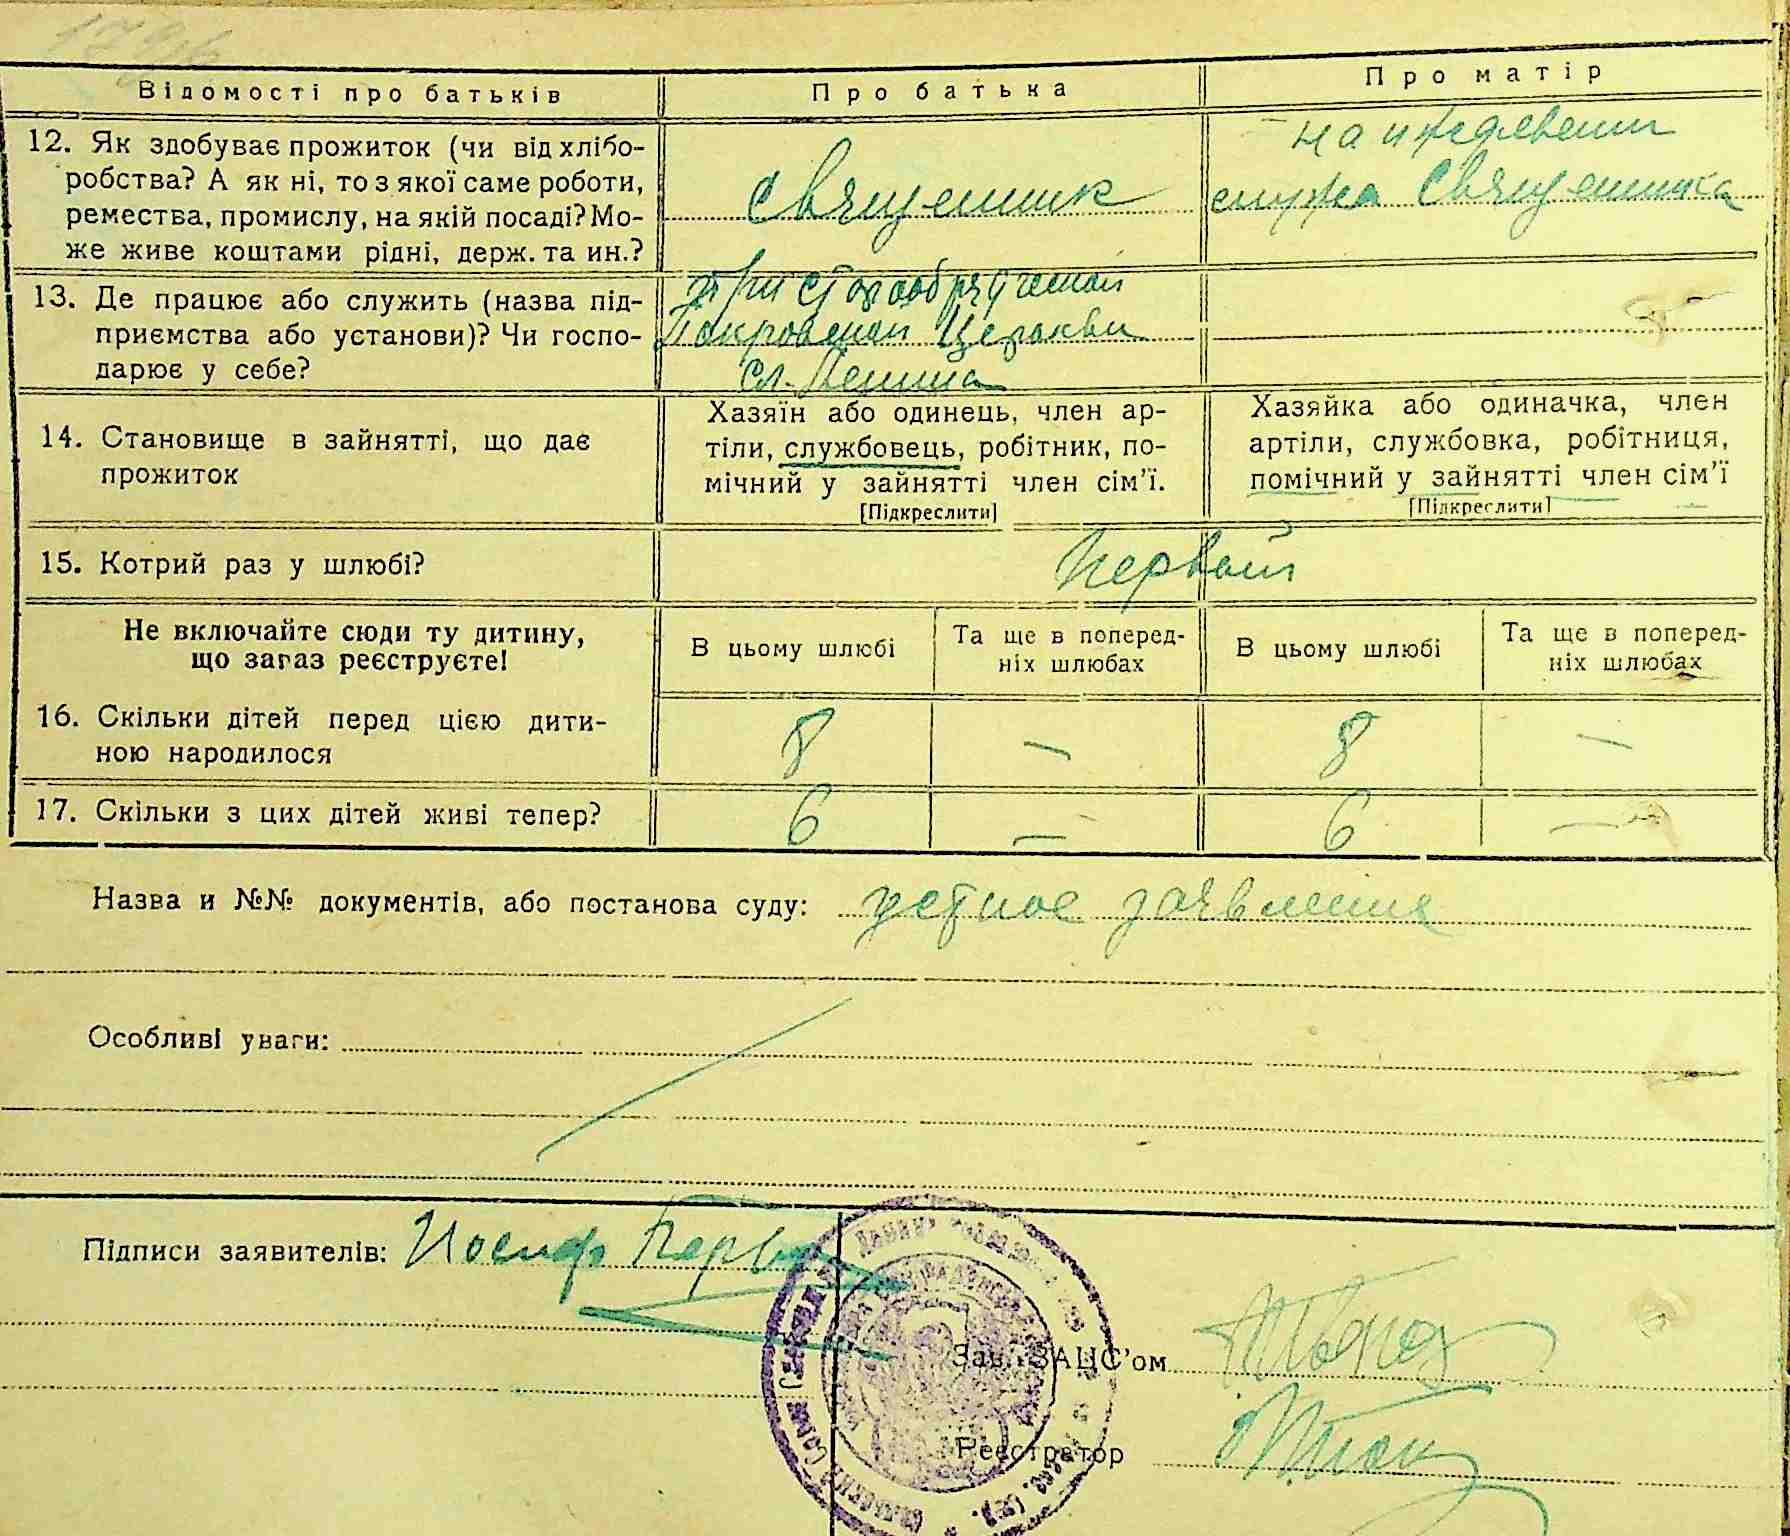 Відомості про батьків
Про батька
Про матір
12. Як здобуває прожиток (чи від хлібо-
робства? А як ні, то з якої саме роботи,
ремества, промислу, на якій посаді? Мо-
же живе коштами рідні, держ. та ин.?
Священник
на иждевении
мужа Священника
13. Де працює або служить (назва під-
приємства або установи)? Чи госпо-
дарює у себе?
при старообрядческой
Покровской Церкви
сл.
14. Становище в зайнятті, що дає
прожиток
Хазяїн або одинець, член ар-
тіли, службовець, робітник, по-
мічний у зайнятті член сім'ї.
[Підкреслити]
Хазяйка або одиначка, член
артіли, службовка, робітниця,
помічний у зайнятті член сім'ї
[Підкреслити]
15. Котрий раз у шлюбі?
Первый
Не включайте сюди ту дитину,
що зараз реєструєте!
В цьому шлюбі
Та ще в поперед-
ніх шлюбах
В цьому шлюбі
Та ще в поперед-
ніх шлюбах
16. Скільки дітей перед цією дити-
ною народилося
8 — 8 —
17. Скільки з цих дітей живі тепер?
6 — 6 —
Назва и №№ документів, або постанова суду: устное заявление
Особливі уваги:
Підписи заявителів: Иосиф
Зав. ЗАЦС'ом
Реєстратор